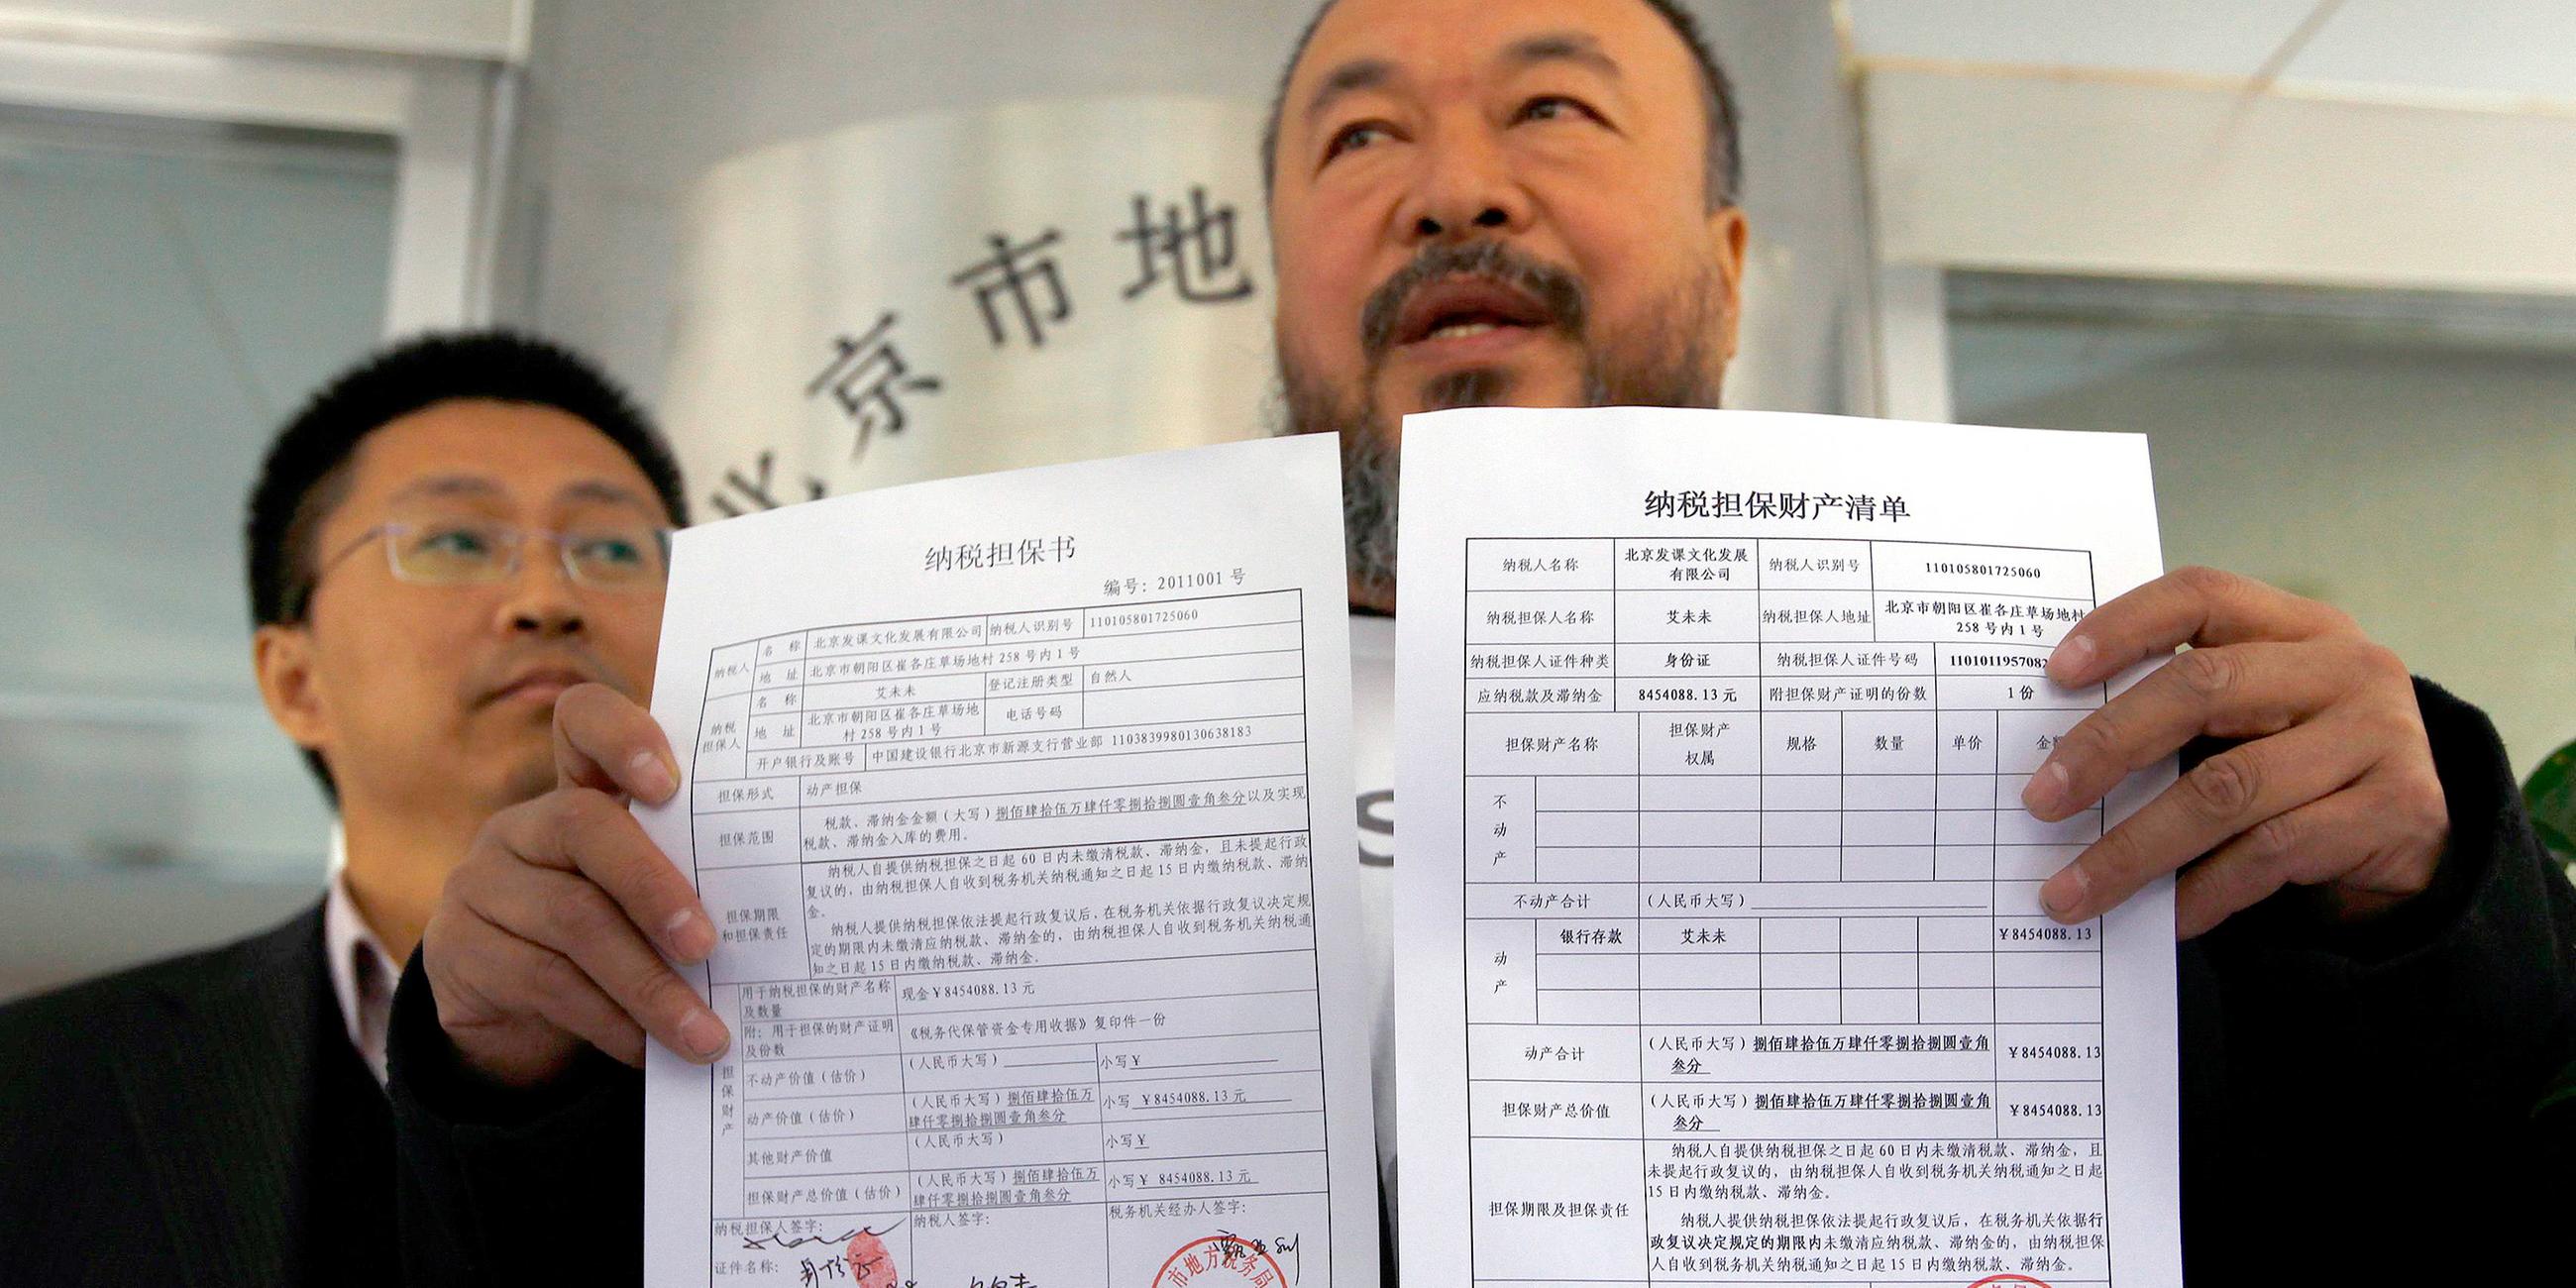 北京市地
纳税担保书
编号：2011001 号
纳税人
名 称 北京发课文化发展有限公司 纳税人识别号 110105801725060
地 址 北京市朝阳区崔各庄草场地村 258 号内 1 号
纳税担保人
名 称 艾未未 登记注册类型 自然人
地 址 北京市朝阳区崔各庄草场地村 258 号内 1 号 电话号码
开户银行及账号 中国建设银行北京市新源支行营业部 1103839980130638183
担保形式 动产担保
担保范围
税款、滞纳金金额（大写）捌佰肆拾伍万肆仟零捌拾捌圆壹角叁分以及实现
税款、滞纳金入库的费用。
担保期限和担保责任
纳税人自提供纳税担保之日起 60 日内未缴清税款、滞纳金，且未提起行政
复议的，由纳税担保人自收到税务机关纳税通知之日起 15 日内缴纳税款、滞纳
金。
纳税人提供纳税担保依法提起行政复议后，在税务机关依据行政复议决定规
定的期限内未缴清应纳税款、滞纳金的，由纳税担保人自收到税务机关纳税通
知之日起 15 日内缴纳税款、滞纳金。
担保财产
用于纳税担保的财产名称及数量 现金￥8454088.13 元
附：用于担保的财产证明及份数 《税务代保管资金专用收据》复印件一份
不动产价值（估价） （人民币大写） 小写￥
动产价值（估价） （人民币大写）捌佰肆拾伍万肆仟零捌拾捌圆壹角叁分 小写 ￥8454088.13 元
其他财产价值 （人民币大写） 小写￥
担保财产总价值（估价） （人民币大写）捌佰肆拾伍万肆仟零捌拾捌圆壹角叁分 小写￥ 8454088.13 元
纳税担保人签字： 纳税人签字： 税务机关经办人签字：
证件名称：
市地方税务局
纳税担保财产清单
纳税人名称 北京发课文化发展有限公司 纳税人识别号 110105801725060
纳税担保人名称 艾未未 纳税担保人地址 北京市朝阳区崔各庄草场地村 258 号内 1 号
纳税担保人证件种类 身份证 纳税担保人证件号码 1101011957082
应纳税款及滞纳金 8454088.13 元 附担保财产证明的份数 1 份
担保财产名称 担保财产权属 规格 数量 单价 金
不动产
不动产合计 （人民币大写）
动产
银行存款 艾未未 ￥8454088.13
动产合计 （人民币大写）捌佰肆拾伍万肆仟零捌拾捌圆壹角叁分 ￥8454088.13
担保财产总价值 （人民币大写）捌佰肆拾伍万肆仟零捌拾捌圆壹角叁分 ￥8454088.13
担保期限及担保责任
纳税人自提供纳税担保之日起 60 日内未缴清税款、滞纳金，且
未提起行政复议的，由纳税担保人自收到税务机关纳税通知之日起
15 日内缴纳税款、滞纳金。
纳税人提供纳税担保依法提起行政复议后，在税务机关依据行
政复议决定规定的期限内未缴清应纳税款、滞纳金的，由纳税担保
人自收到税务机关纳税通知之日起 15 日内缴纳税款、滞纳金。